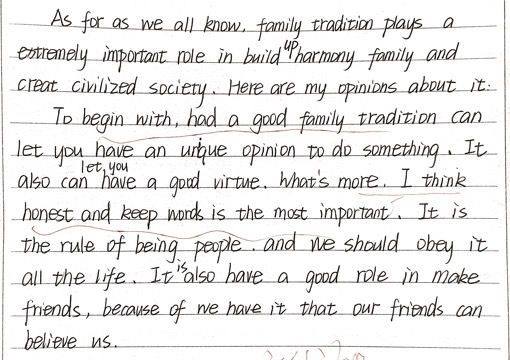 As for as we all know, family tradition plays a
extremely important role in build up harmony family and
creat civilized society. Here are my opinions about it:
To begin with, had a good family tradition can
let you have an unique opinion to do something. It
also can let you have a good virtue. What's more. I think
honest and keep words is the most important. It is
the rule of being people. and we should obey it
all the life. It is also have a good role in make
friends, because of we have it that our friends can
believe us.